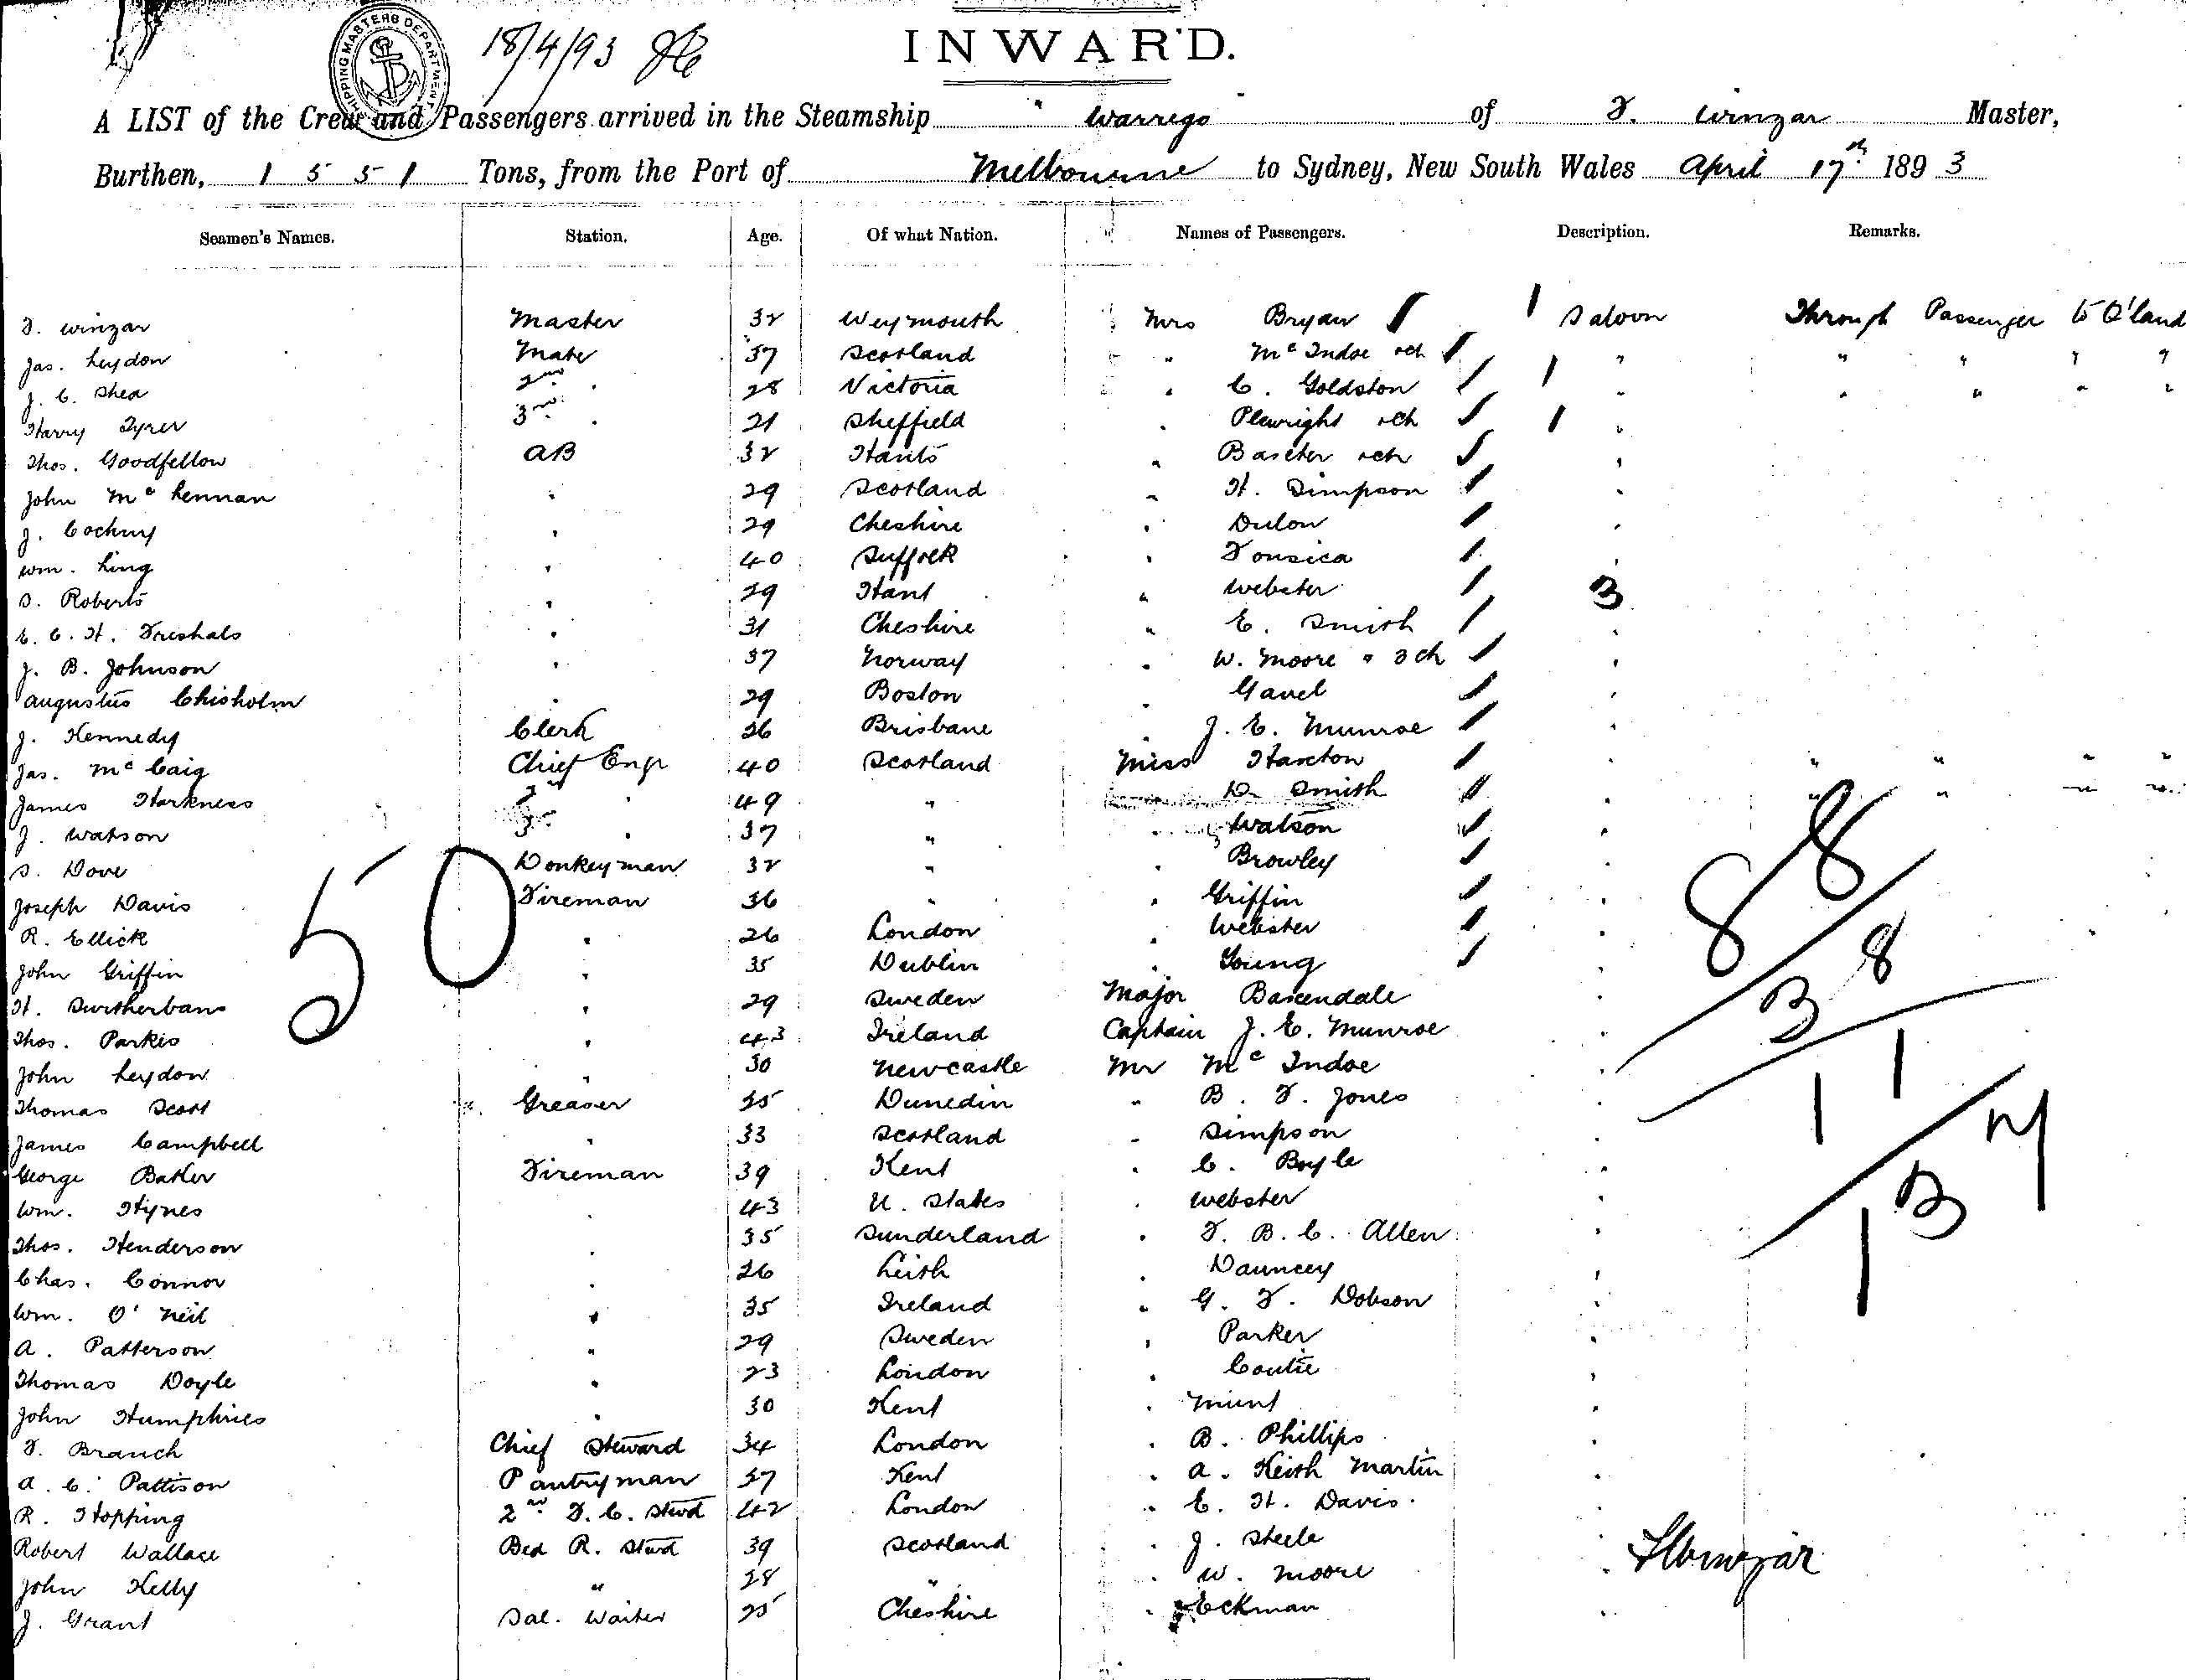 SHIPPING MASTERS DEPARTMENT
18/4/93
INWARD.
A LIST of the Crew and Passengers arrived in the Steamship "Warrego" of F. Winzar Master,
Burthen, 1551 Tons, from the Port of Melbourne to Sydney, New South Wales April 17th 1893
Seamen's Names. Station. Age. Of what Nation. Names of Passengers. Description. Remarks.
F. Winzar Master 32 Weymouth Mrs Bryan 1 Saloon Through Passenger to Q'land
Jas. Leydon Mate 37 Scotland " McIndoe " " " " "
J. C. Shea 2nd " 28 Victoria " C. Goldston 1 " " " " "
Harry Tyrer 3rd " 21 Sheffield " Plewright & ch 1 "
Thos. Goodfellow AB 32 Hants " Baxter & ch "
John McLennan " 29 Scotland " H. Simpson "
J. " 29 Cheshire " Dulon "
Wm. Ling " 40 Suffolk " Fonsica "
S. Roberts " 29 Hant " Webster 3
E. C. H. " 31 Cheshire " E. Smith "
J. B. Johnson " 37 Norway " W. Moore & 3 ch "
Augustus Chisholm " 29 Boston " Gavel "
J. Kennedy Clerk 26 Brisbane " J. E. Munroe "
Jas. McCaig Chief Engr 40 Scotland Miss Haxton " " " " "
James Harkness 2nd " 49 " D. Smith " " " " "
J. Watson 3 " 37 " " Watson "
S. Dove Donkeyman 32 " " Browley "
Joseph Davis Fireman 36 " " Griffin " 88
R. Ellick " 26 London " Webster "
John Griffin " 35 Dublin " Young " 38
H. " 29 Sweden Major Baxendale "
Thos. Parkis " 43 Ireland Captain J. E. Munroe "
John Leydon " 30 Newcastle Mr McIndoe " 11
Thomas Scott Greaser 35 Dunedin " B. F. Jones "
James Campbell " 33 Scotland " Simpson "
George Baker Fireman 39 Kent " C. Boyle " 137
Wm. Hynes " 43 U. States " Webster "
Thos. Henderson " 35 Sunderland " F. B. C. Allen "
Chas. Connor " 26 Leith " Dauncey "
Wm. O'Neil " 35 Ireland " G. F. Dobson "
A. Patterson " 29 Sweden " Parker "
Thomas Doyle " 23 London " Coutie "
John Humphries " 30 Kent " Munt "
F. Branch Chief Steward 34 London " B. Phillips "
A. C. Pattison Pantryman 37 Kent " A. Keith Martin "
R. Hopping 2nd F. C. Stwd 42 London " E. H. Davis "
Robert Wallace Bed R. Stwd 39 Scotland " J. Steele "
John Kelly " 28 " " W. Moore " F Winzar
J. Grant Sal. Waiter 25 Cheshire " Eckman "
50